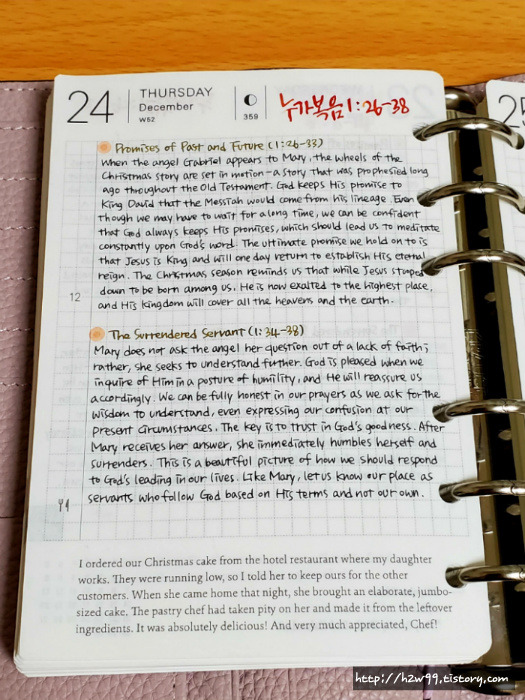 24
THURSDAY
December
W52
359
누가복음 1:26-38
25
Promises of Past and Future (1:26-33)
When the angel Gabriel appears to Mary, the wheels of the
Christmas story are set in motion - a story that was prophesied long
ago throughout the Old Testament. God keeps His promise to
King David that the Messiah would come from his lineage. Even
though we may have to wait for a long time, we can be confident
that God always keeps His promises, which should lead us to meditate
constantly upon God's word. The ultimate promise we hold on to is
that Jesus is King and will one day return to establish His eternal
reign. The Christmas season reminds us that while Jesus stooped
12
down to be born among us. He is now exalted to the highest place,
and His kingdom will cover all the heavens and the earth.
The Surrendered Servant (1:34-38)
Mary does not ask the angel her question out of a lack of faith;
rather, she seeks to understand further. God is pleased when we
inquire of Him in a posture of humility, and He will reassure us
accordingly. We can be fully honest in our prayers as we ask for the
wisdom to understand, even expressing our confusion at our
present circumstances. The key is to trust in God's goodness. After
Mary receives her answer, she immediately humbles herself and
surrenders. This is a beautiful picture of how we should respond
to God's leading in our lives. Like Mary, let us know our place as
servants who follow God based on His terms and not our own.
I ordered our Christmas cake from the hotel restaurant where my daughter
works. They were running low, so I told her to keep ours for the other
customers. When she came home that night, she brought an elaborate, jumbo-
sized cake. The pastry chef had taken pity on her and made it from the leftover
ingredients. It was absolutely delicious! And very much appreciated, Chef!
http://h2w99.tistory.com